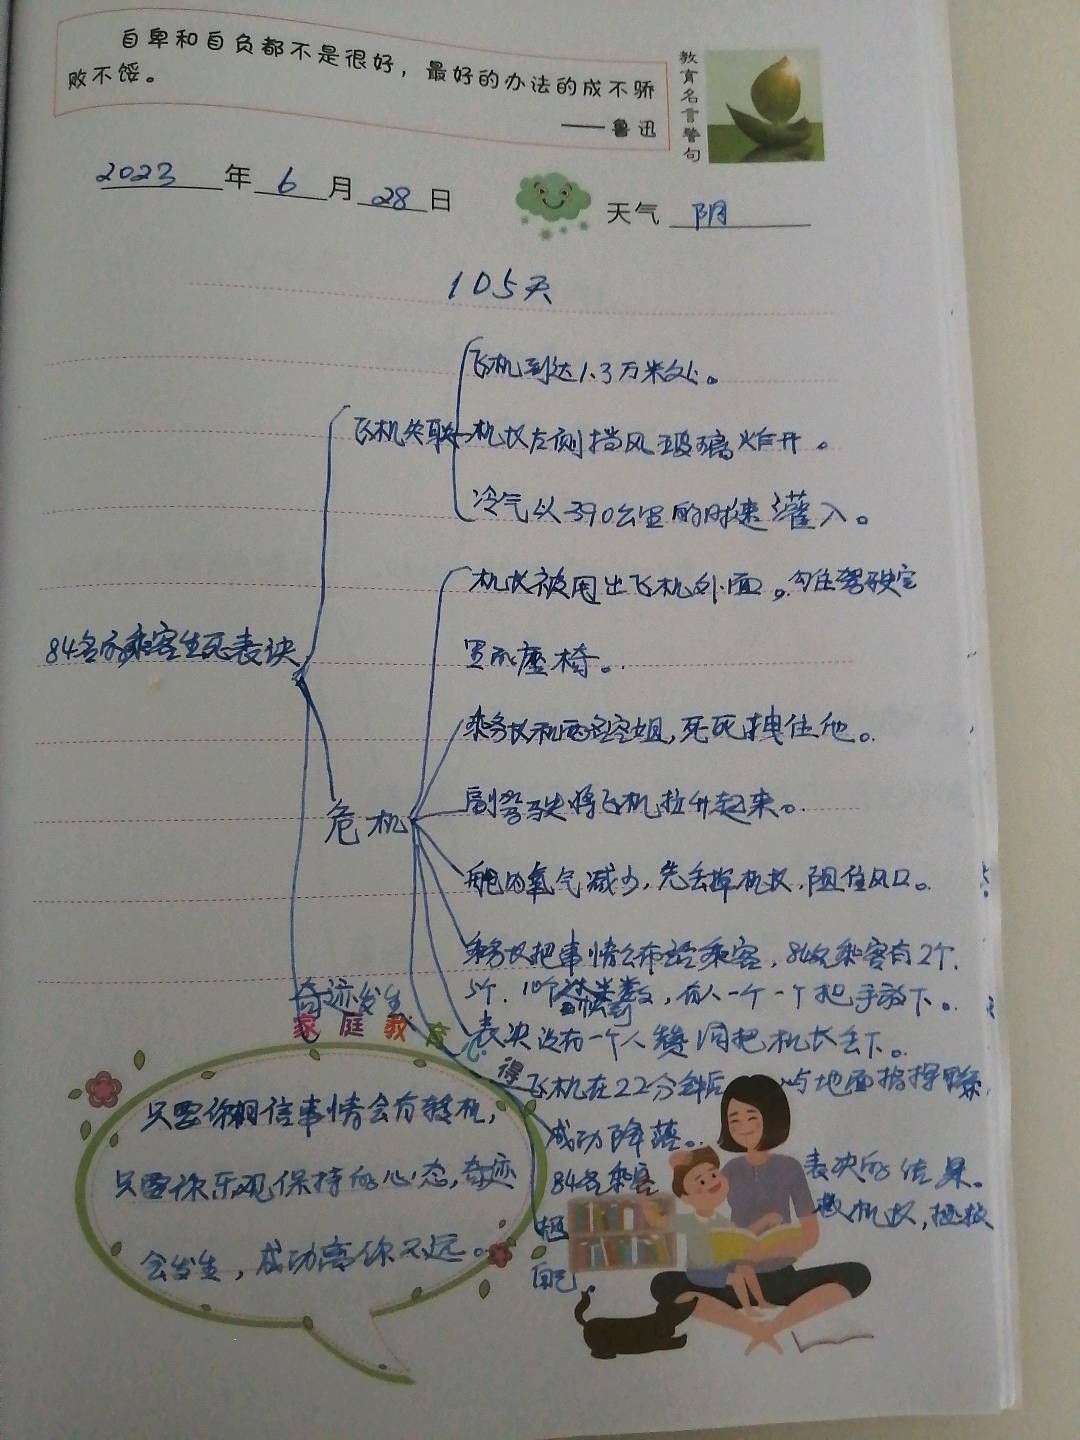 自卑和自负都不是很好，最好的办法的成不骄
败不馁。
——鲁迅
教育名言警句
2023年6月28日
天气 阴
105天
飞机到达1.3万米处。
飞机失联
机长左侧挡风玻璃炸开。
冷气以390公里的时速灌入。
机长被甩出飞机外面。勾住驾驶室
座椅。
84名乘客生死表诀
乘务长和两名空姐，死死拽住他。
副驾驶将飞机拉升起来。
危机
舱内氧气减少，先丢掉机长，阻住风口。
乘务长把事情公布给乘客，84名乘客有2个.
5个.10个，有人一个一个把手放下。
奇迹发生
表决没有一个人赞同把机长丢下。
家庭教育心得
飞机在22分钟后 与地面
成功降落。
84名乘客 表决的结果。
机长，拯救
自己。
只要你相信事情会有转机，
只要你乐观保持的心态，奇迹
会发生，成功离你不远。